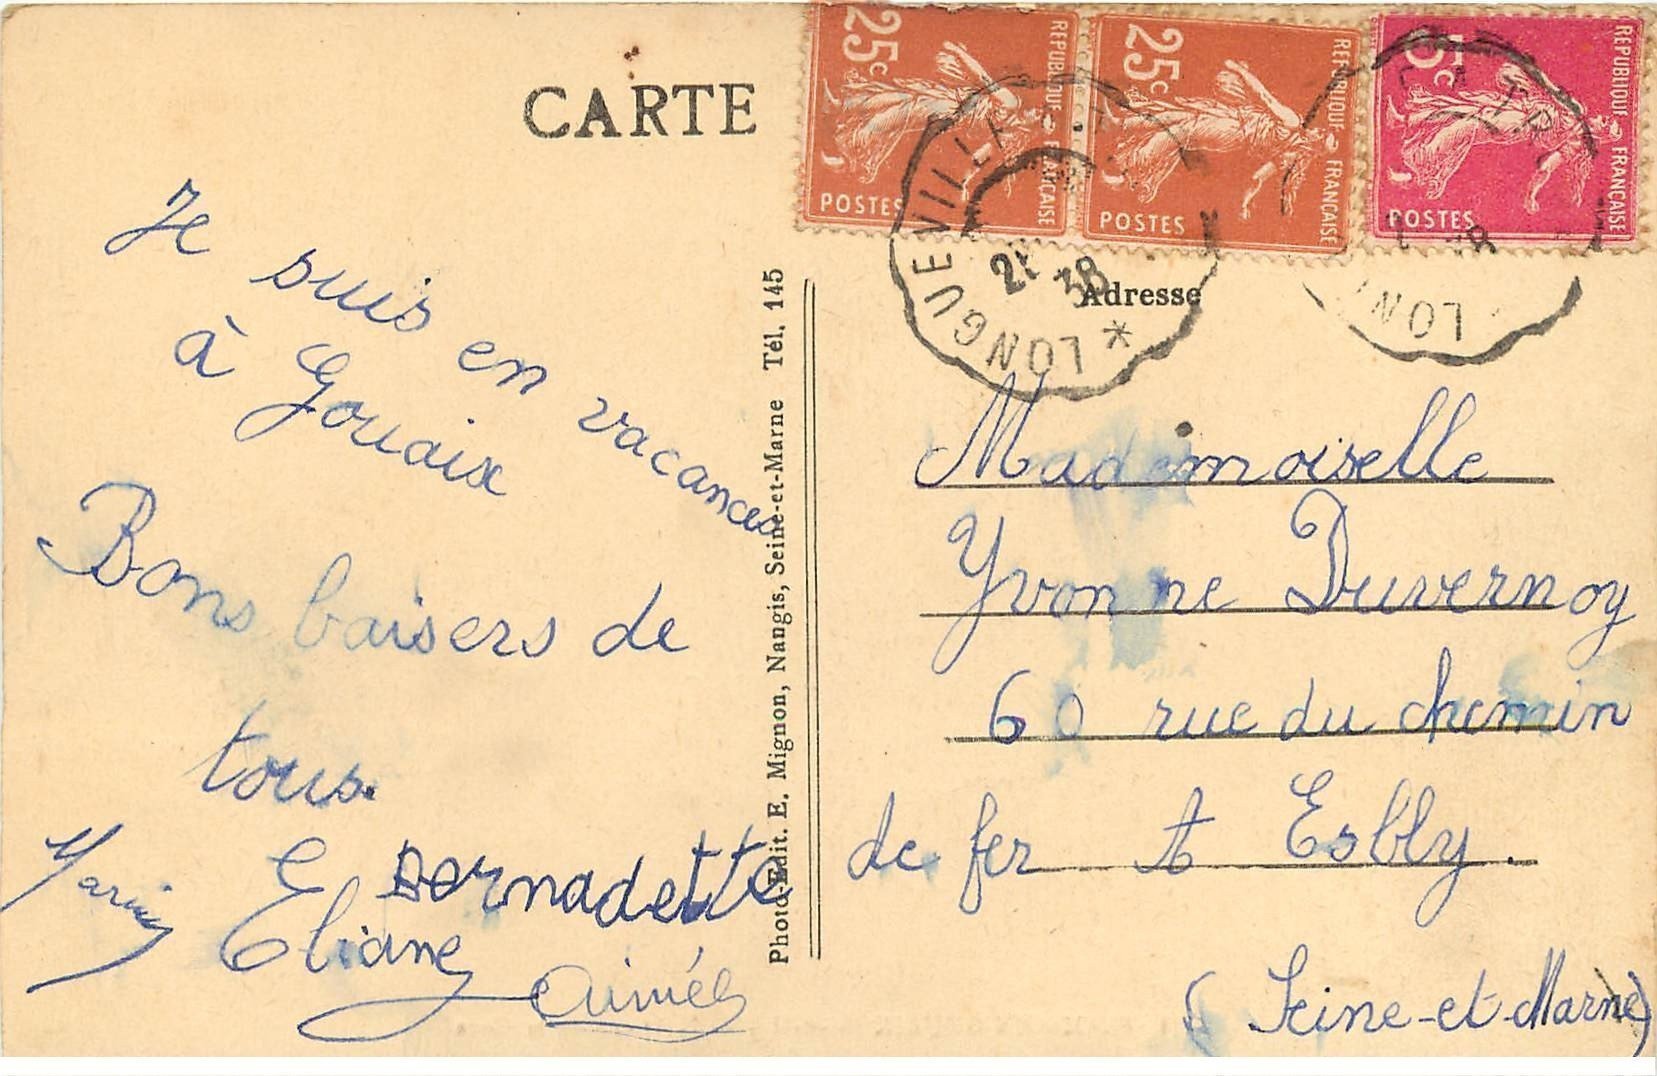 CARTE
25c REPUBLIQUE FRANÇAISE POSTES
25c REPUBLIQUE FRANÇAISE POSTES
5c REPUBLIQUE FRANÇAISE POSTES
LONGUEVILLE
38
* LON
LON
Adresse
Je suis en vacances
à Gouaix
Bons baisers de
tous.
Bernadette
Eliane
Aimée
Photo-Edit. E. Mignon, Nangis, Seine-et-Marne Tél. 145
Mademoiselle
Yvonne Duvernoy
60 rue du chemin
de fer A Esbly.
(Seine-et-Marne)